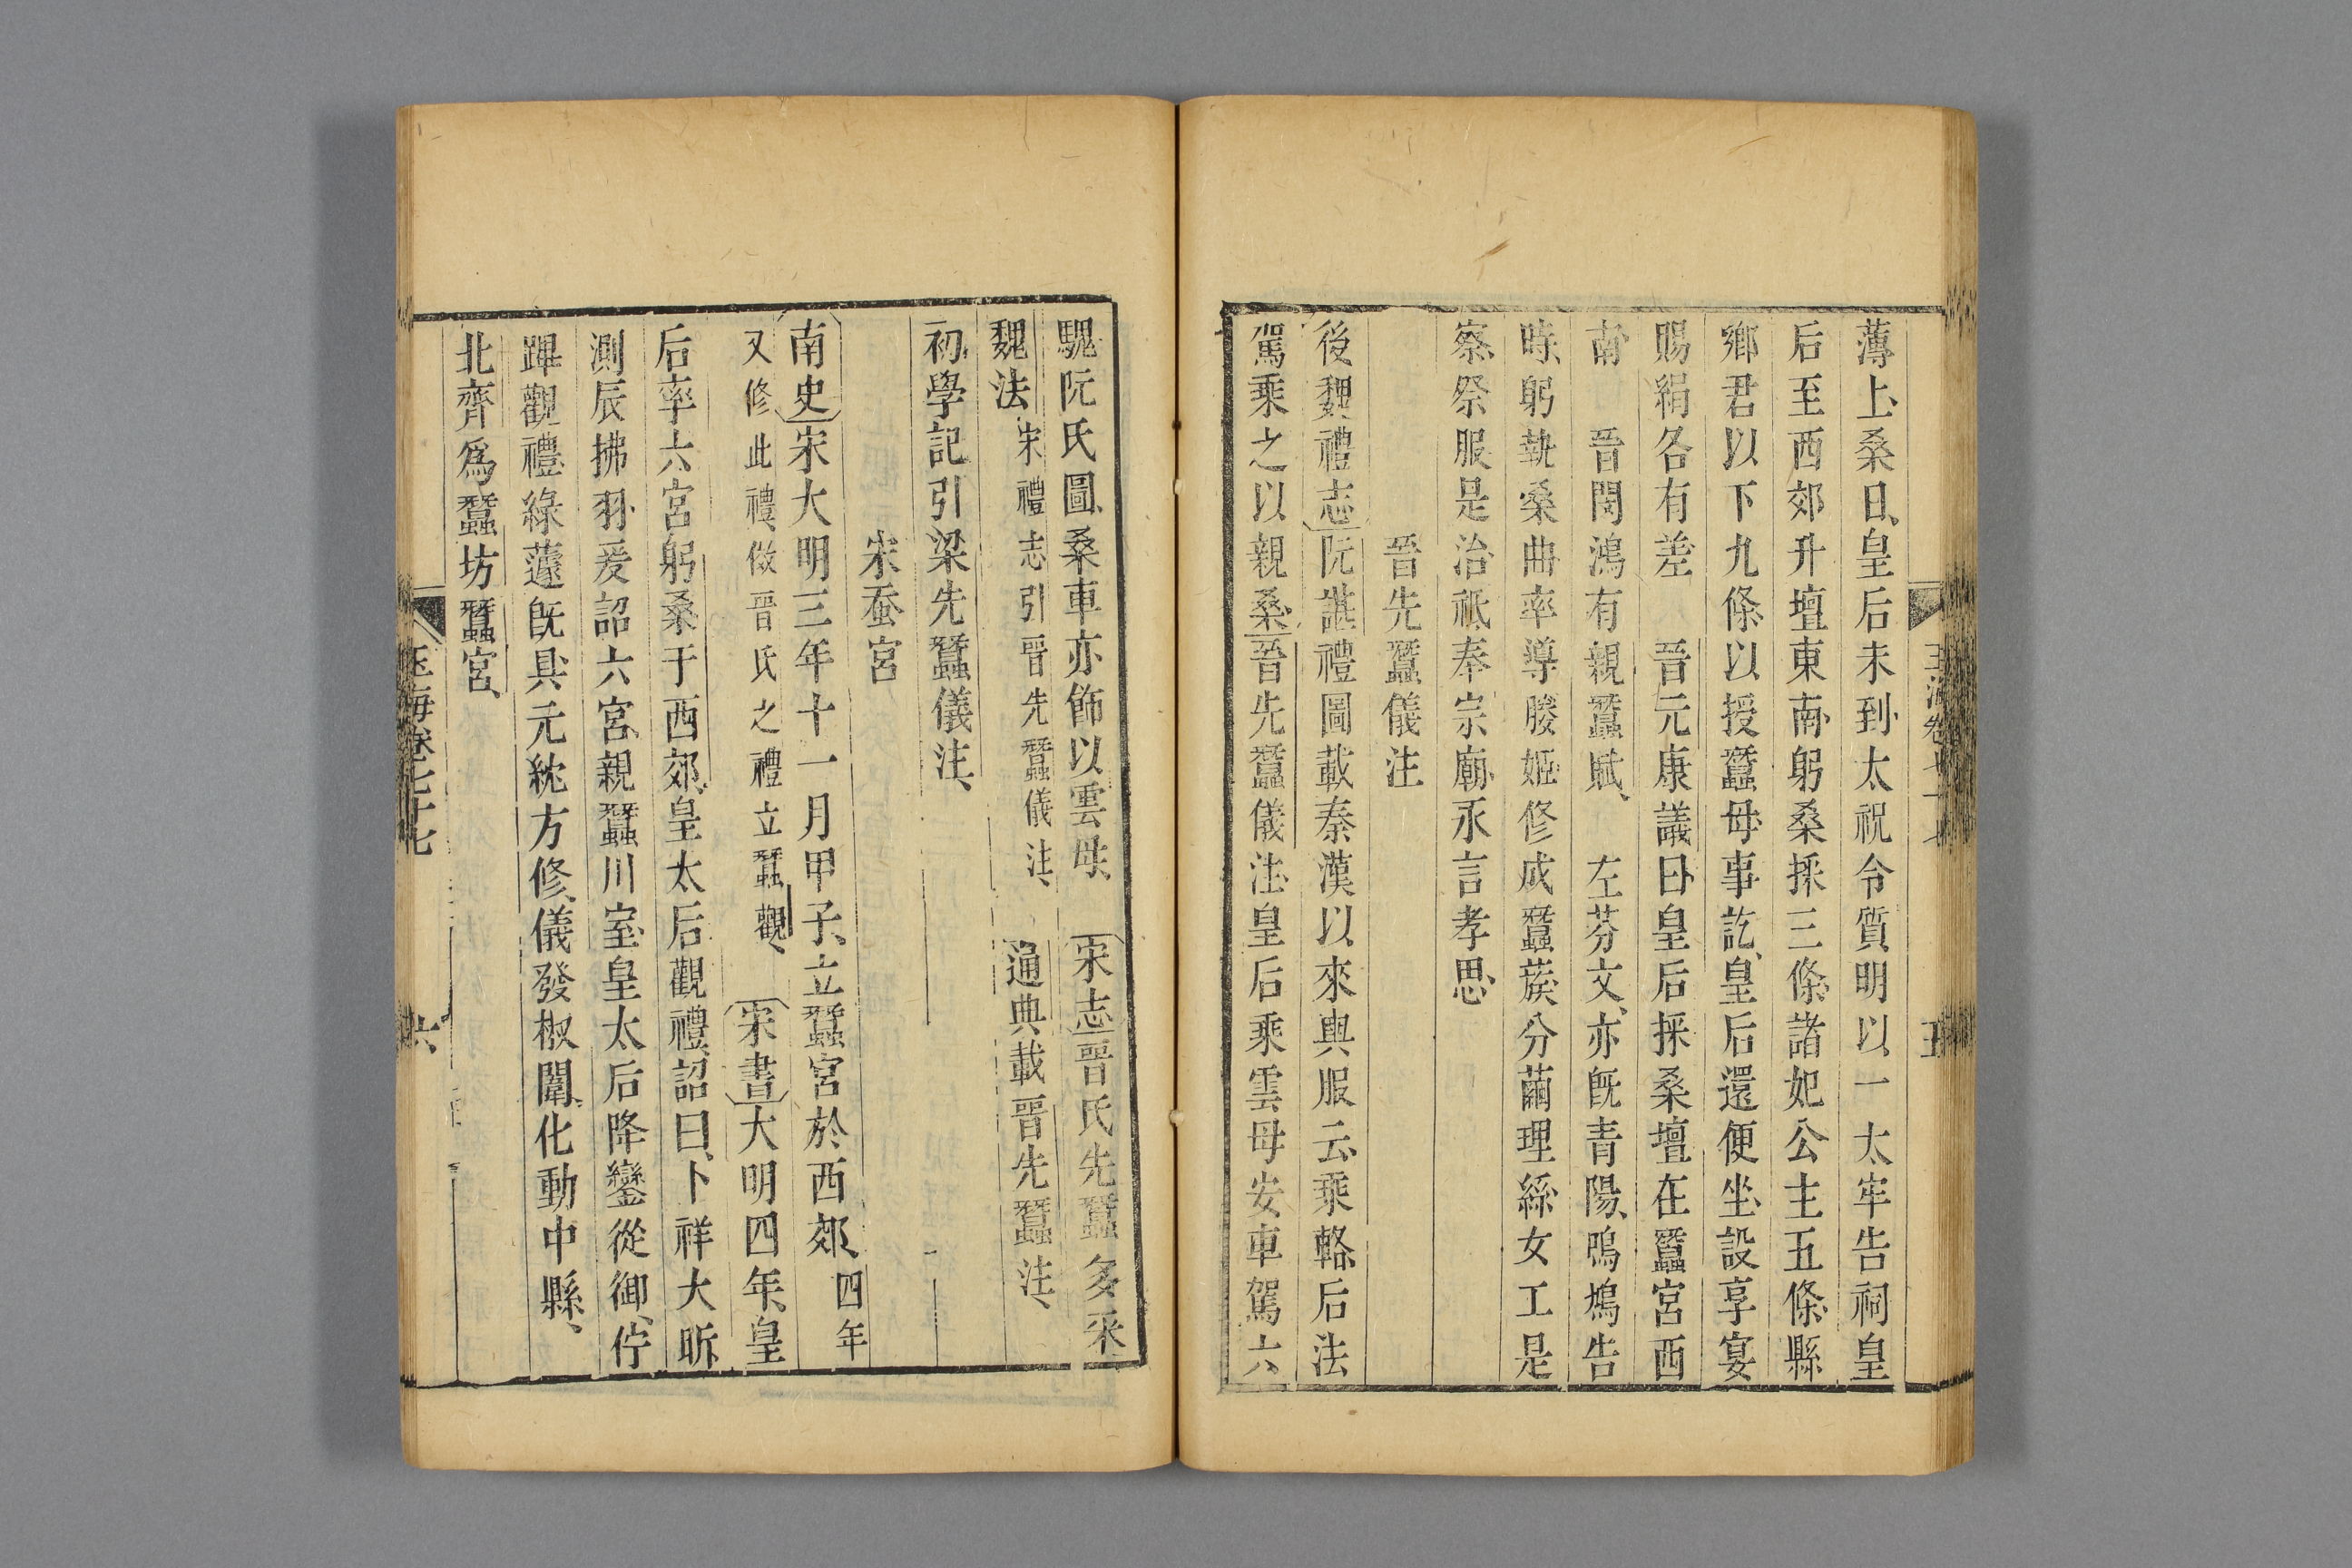 玉海卷七十七
五
薄上桑日皇后未到太祝令質明以一太牢告祠皇
后至西郊升壇東南躬桑採三條諸妃公主五條縣
鄉君以下九條以授蠶母事訖皇后還便坐設享宴
賜絹各有差 晉元康議曰皇后採桑壇在蠶宮西
南 晉閔鴻有親蠶賦 左芬文亦旣青陽鳴鳩告
時躬執桑曲率導媵姬修成蠶蔟分繭理絲女工是
察祭服是治祗奉宗廟永言孝思
晉先蠶儀注
後魏禮志阮諶禮圖載秦漢以來輿服云乘輅后法
駕乘之以親桑晉先蠶儀注皇后乘雲母安車駕六
騩阮氏圖桑車亦飾以雲母 宋志晉氏先蠶多采
魏法宋禮志引晉先蠶儀注 通典載晉先蠶注
初學記引梁先蠶儀注
宋蚕宮
南史宋大明三年十一月甲子立蠶宮於西郊四年
又修此禮倣晉氏之禮立蠶觀 宋書大明四年皇
后率六宮躬桑于西郊皇太后觀禮詔曰卜祥大昕
測辰拂羽爰詔六宮親蠶川室皇太后降鑾從御佇
蹕觀禮綠蘧旣具元紞方修儀發椒闈化動中縣
北齊爲蠶坊蠶宮
玉海卷七十七
六